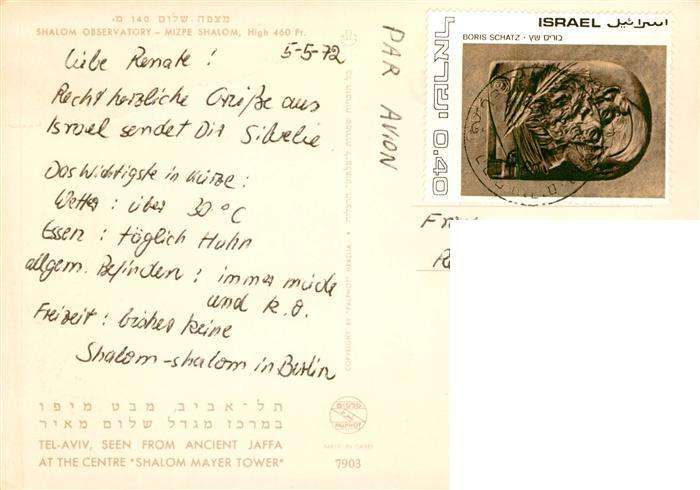 מצפה שלום 140 מ.
SHALOM OBSERVATORY – MIZPE SHALOM, High 460 Ft.
5-5-72
Liebe Renate!
Recht herzliche Grüße aus
Israel sendet Dir Silvelie
Das Wichtigste in Kürze:
Wetter: über 30°C
Essen: täglich Huhn
allgem. Befinden: immer müde
und k.o.
Freizeit: bisher keine
Shalom-shalom in Berlin
תל-אביב, מבט מיפו
במרכז מגדל שלום מאיר
TEL-AVIV, SEEN FROM ANCIENT JAFFA
AT THE CENTRE "SHALOM MAYER TOWER"
פלפוט
PALPHOT
7903
COPYRIGHT BY "PALPHOT" HERZLIA
PAR AVION
ISRAEL اسرائيل
BORIS SCHATZ · בוריס שץ
ישראל 0.40